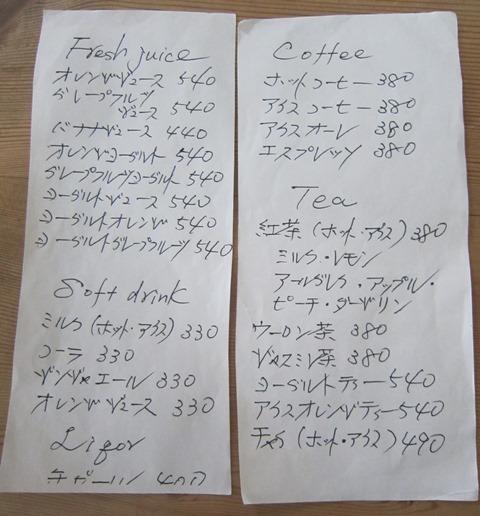 Fresh juice
オレンジジュース 540
グレープフルーツ
ジュース 540
バナナジュース 440
オレンジヨーグルト 540
グレープフルーツヨーグルト 540
ヨーグルトジュース 540
ヨーグルトオレンジ 540
ヨーグルトグレープフルーツ 540
Soft drink
ミルク (ホット・アイス) 330
コーラ 330
ジンジャエール 330
オレンジジュース 330
Liqor
Coffee
ホットコーヒー 380
アイスコーヒー 380
アイスオーレ 380
エスプレッソ 380
Tea
紅茶 (ホット・アイス) 380
ミルク・レモン
アールグレイ・アップル・
ピーチ・ダージリン
ウーロン茶 380
ジャスミン茶 380
ヨーグルトティー 540
アイスオレンジティー 540
チャイ (ホット・アイス) 490